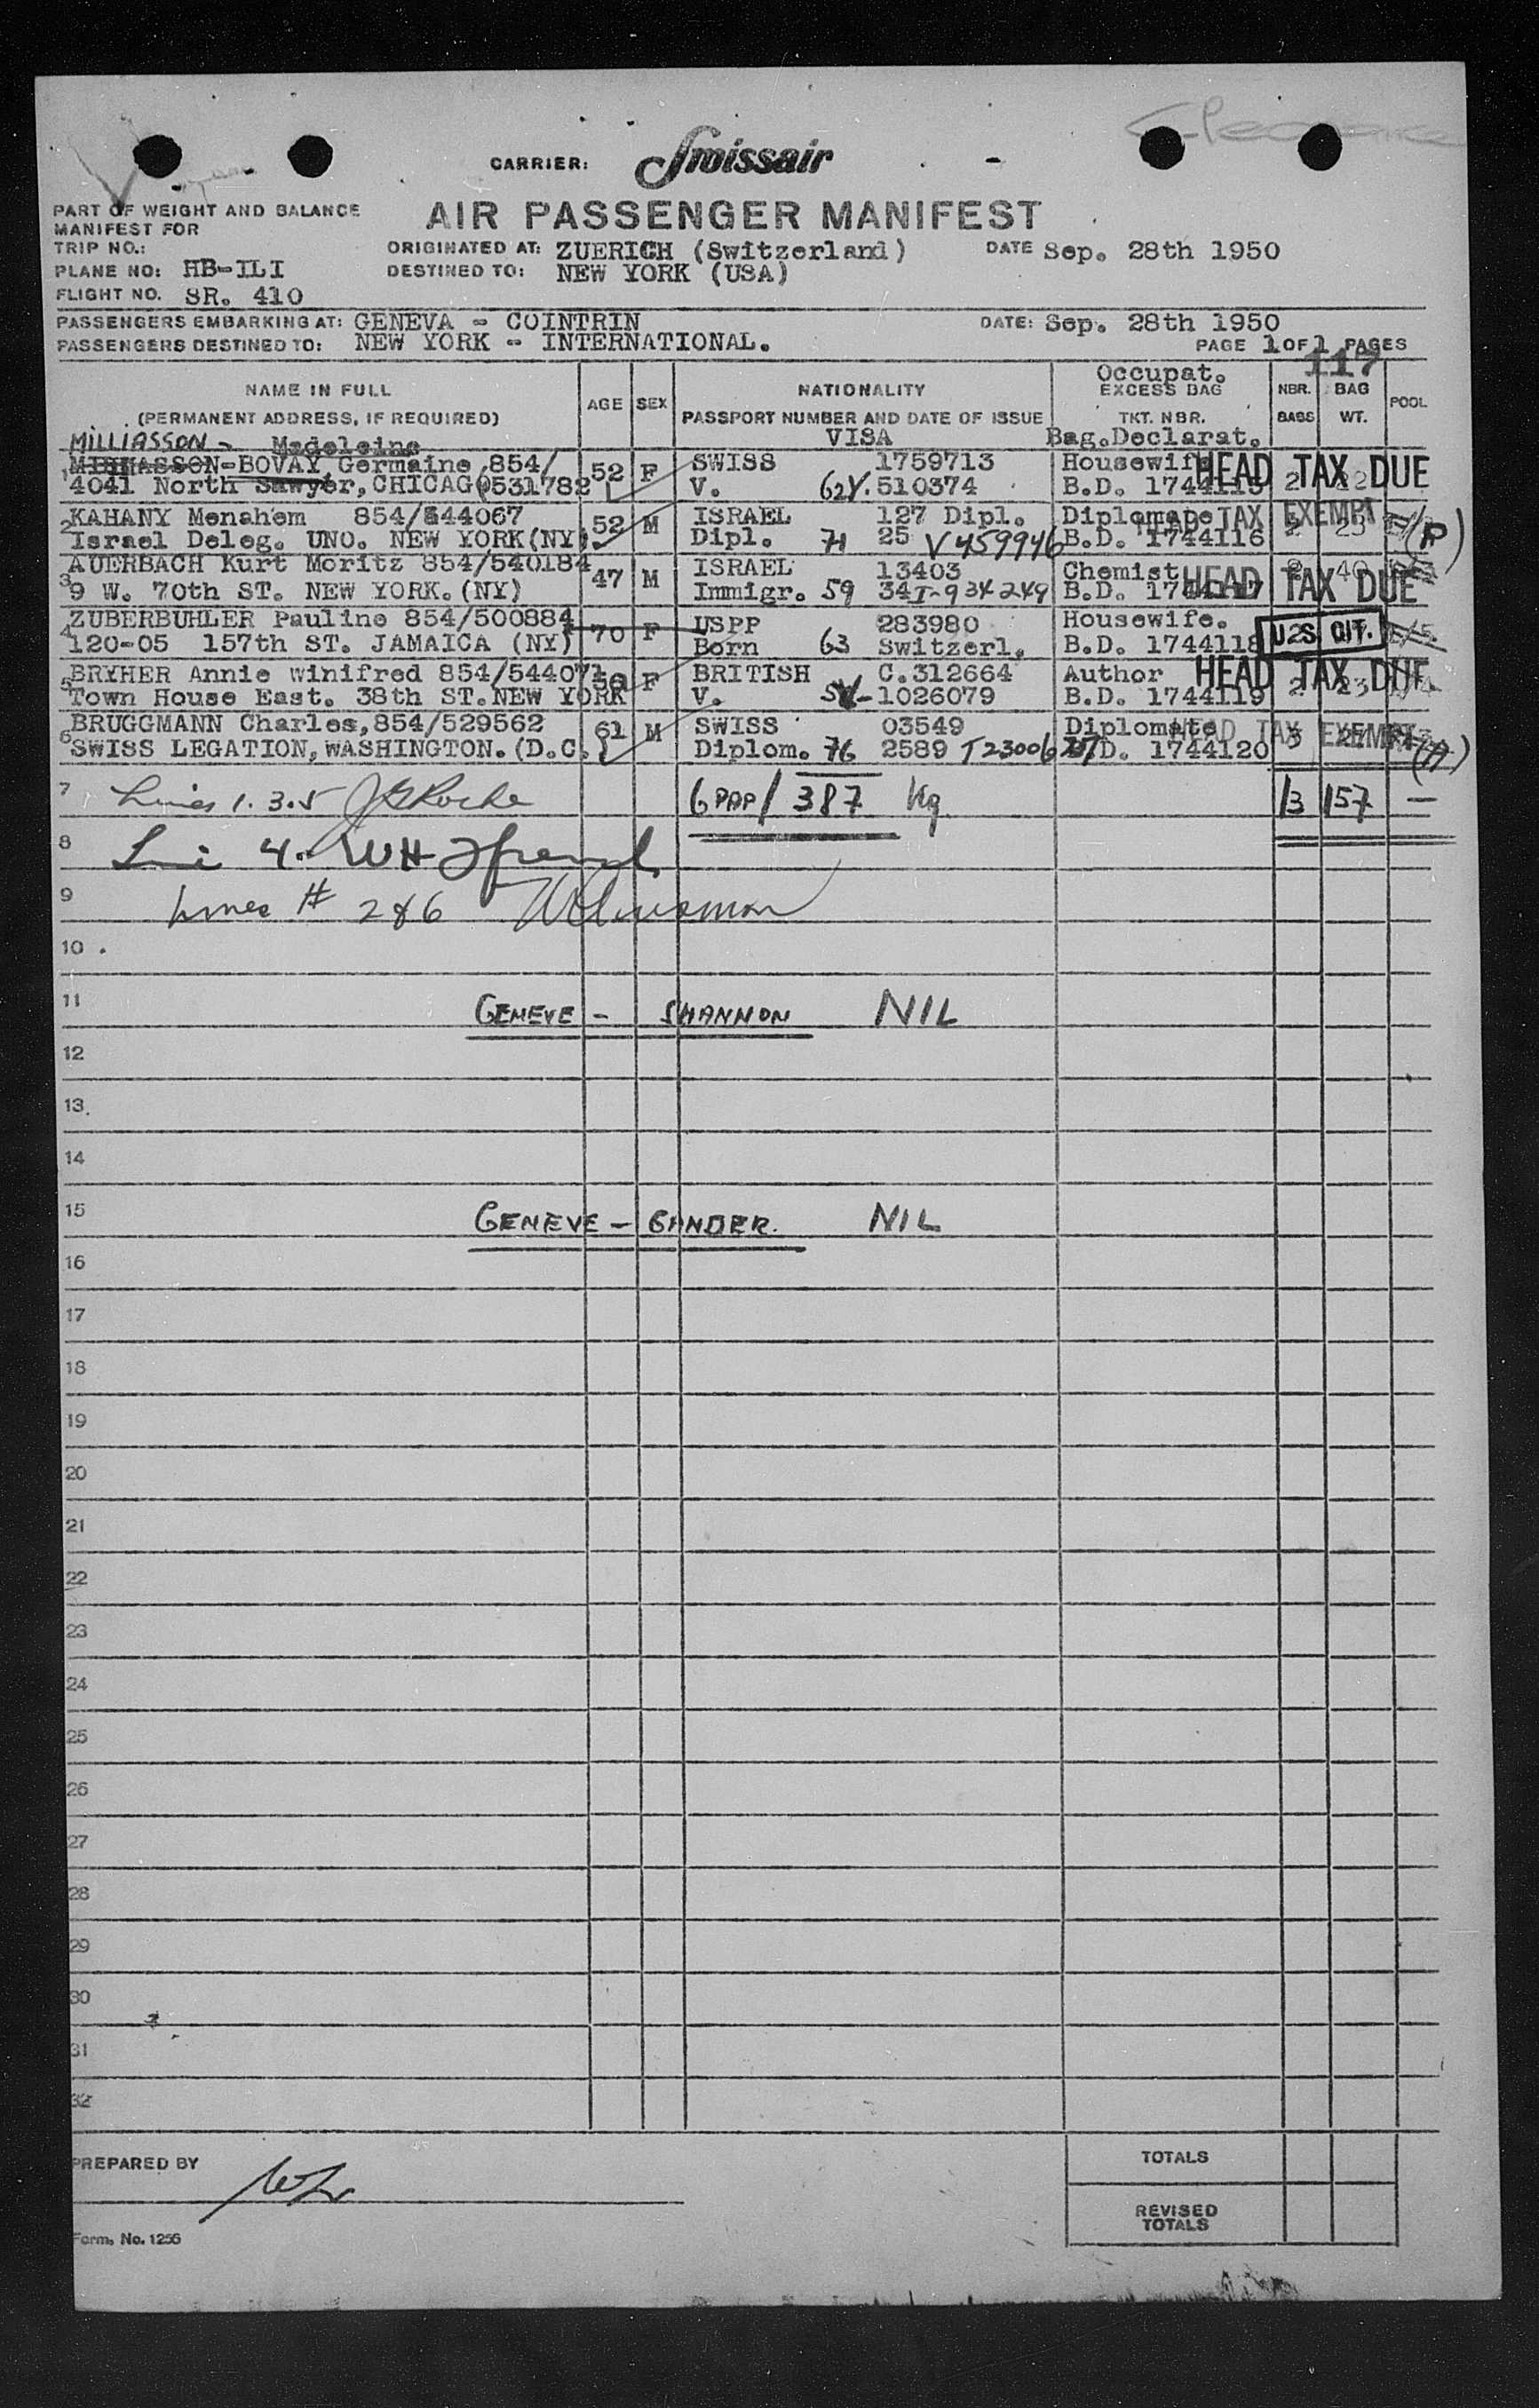 CARRIER: Swissair
PART OF WEIGHT AND BALANCE
MANIFEST FOR
AIR PASSENGER MANIFEST
TRIP NO.:
ORIGINATED AT: ZUERICH (Switzerland) DATE Sep. 28th 1950
PLANE NO: HB-ILI
DESTINED TO: NEW YORK (USA)
FLIGHT NO. SR. 410
PASSENGERS EMBARKING AT: GENEVA - COINTRIN DATE: Sep. 28th 1950
PASSENGERS DESTINED TO: NEW YORK - INTERNATIONAL. PAGE 1 OF 1 PAGES
117
NAME IN FULL AGE SEX NATIONALITY Occupat. EXCESS BAG NBR. BAG POOL
(PERMANENT ADDRESS, IF REQUIRED) PASSPORT NUMBER AND DATE OF ISSUE TKT. NBR. BAGS WT.
VISA Bag.Declarat.
MILLIASSON - Madeleine
1 -BOVAY Germaine 854/ 52 F SWISS 1759713 Housewife HEAD TAX DUE
4041 North Sawyer, CHICAGO 531782 V. 62Y. 510374 B.D. 1744115 2
2 KAHANY Menahem 854/544067 52 M ISRAEL 127 Dipl. Diplomate HEAD TAX EXEMPT
Israel Deleg. UNO. NEW YORK(NY) Dipl. 71 25 V459946 B.D. 1744116 2 25 (A)
3 AUERBACH Kurt Moritz 854/540184 47 M ISRAEL 13403 Chemist HEAD TAX DUE 40
9 W. 70th ST. NEW YORK.(NY) Immigr. 59 34 I-934249 B.D. 1744117
4 ZUBERBUHLER Pauline 854/500884 70 F USPP 283980 Housewife. U.S. CIT.
120-05 157th ST. JAMAICA (NY) Born 63 Switzerl. B.D. 1744118
5 BRYHER Annie Winifred 854/544071 F BRITISH C.312664 Author HEAD TAX DUE
Town House East. 38th ST.NEW YORK V. 1026079 B.D. 1744119 2 23
6 BRUGGMANN Charles,854/529562 61 M SWISS 03549 Diplomate HEAD TAX EXEMPT
SWISS LEGATION,WASHINGTON.(D.C.) Diplom. 76 2589 T23006 B.D. 1744120 3 27 (A)
7 Lines 1.3.5 J Roche 6 pap / 387 Kg 13 157 —
8 Line 4. WH
9 Lines # 2 & 6
10
11 GENEVE - SHANNON NIL
12
13
14
15 GENEVE - GANDER. NIL
16
17
18
19
20
21
22
23
24
25
26
27
28
29
30
31
32
PREPARED BY
TOTALS
REVISED
TOTALS
Form. No. 1256